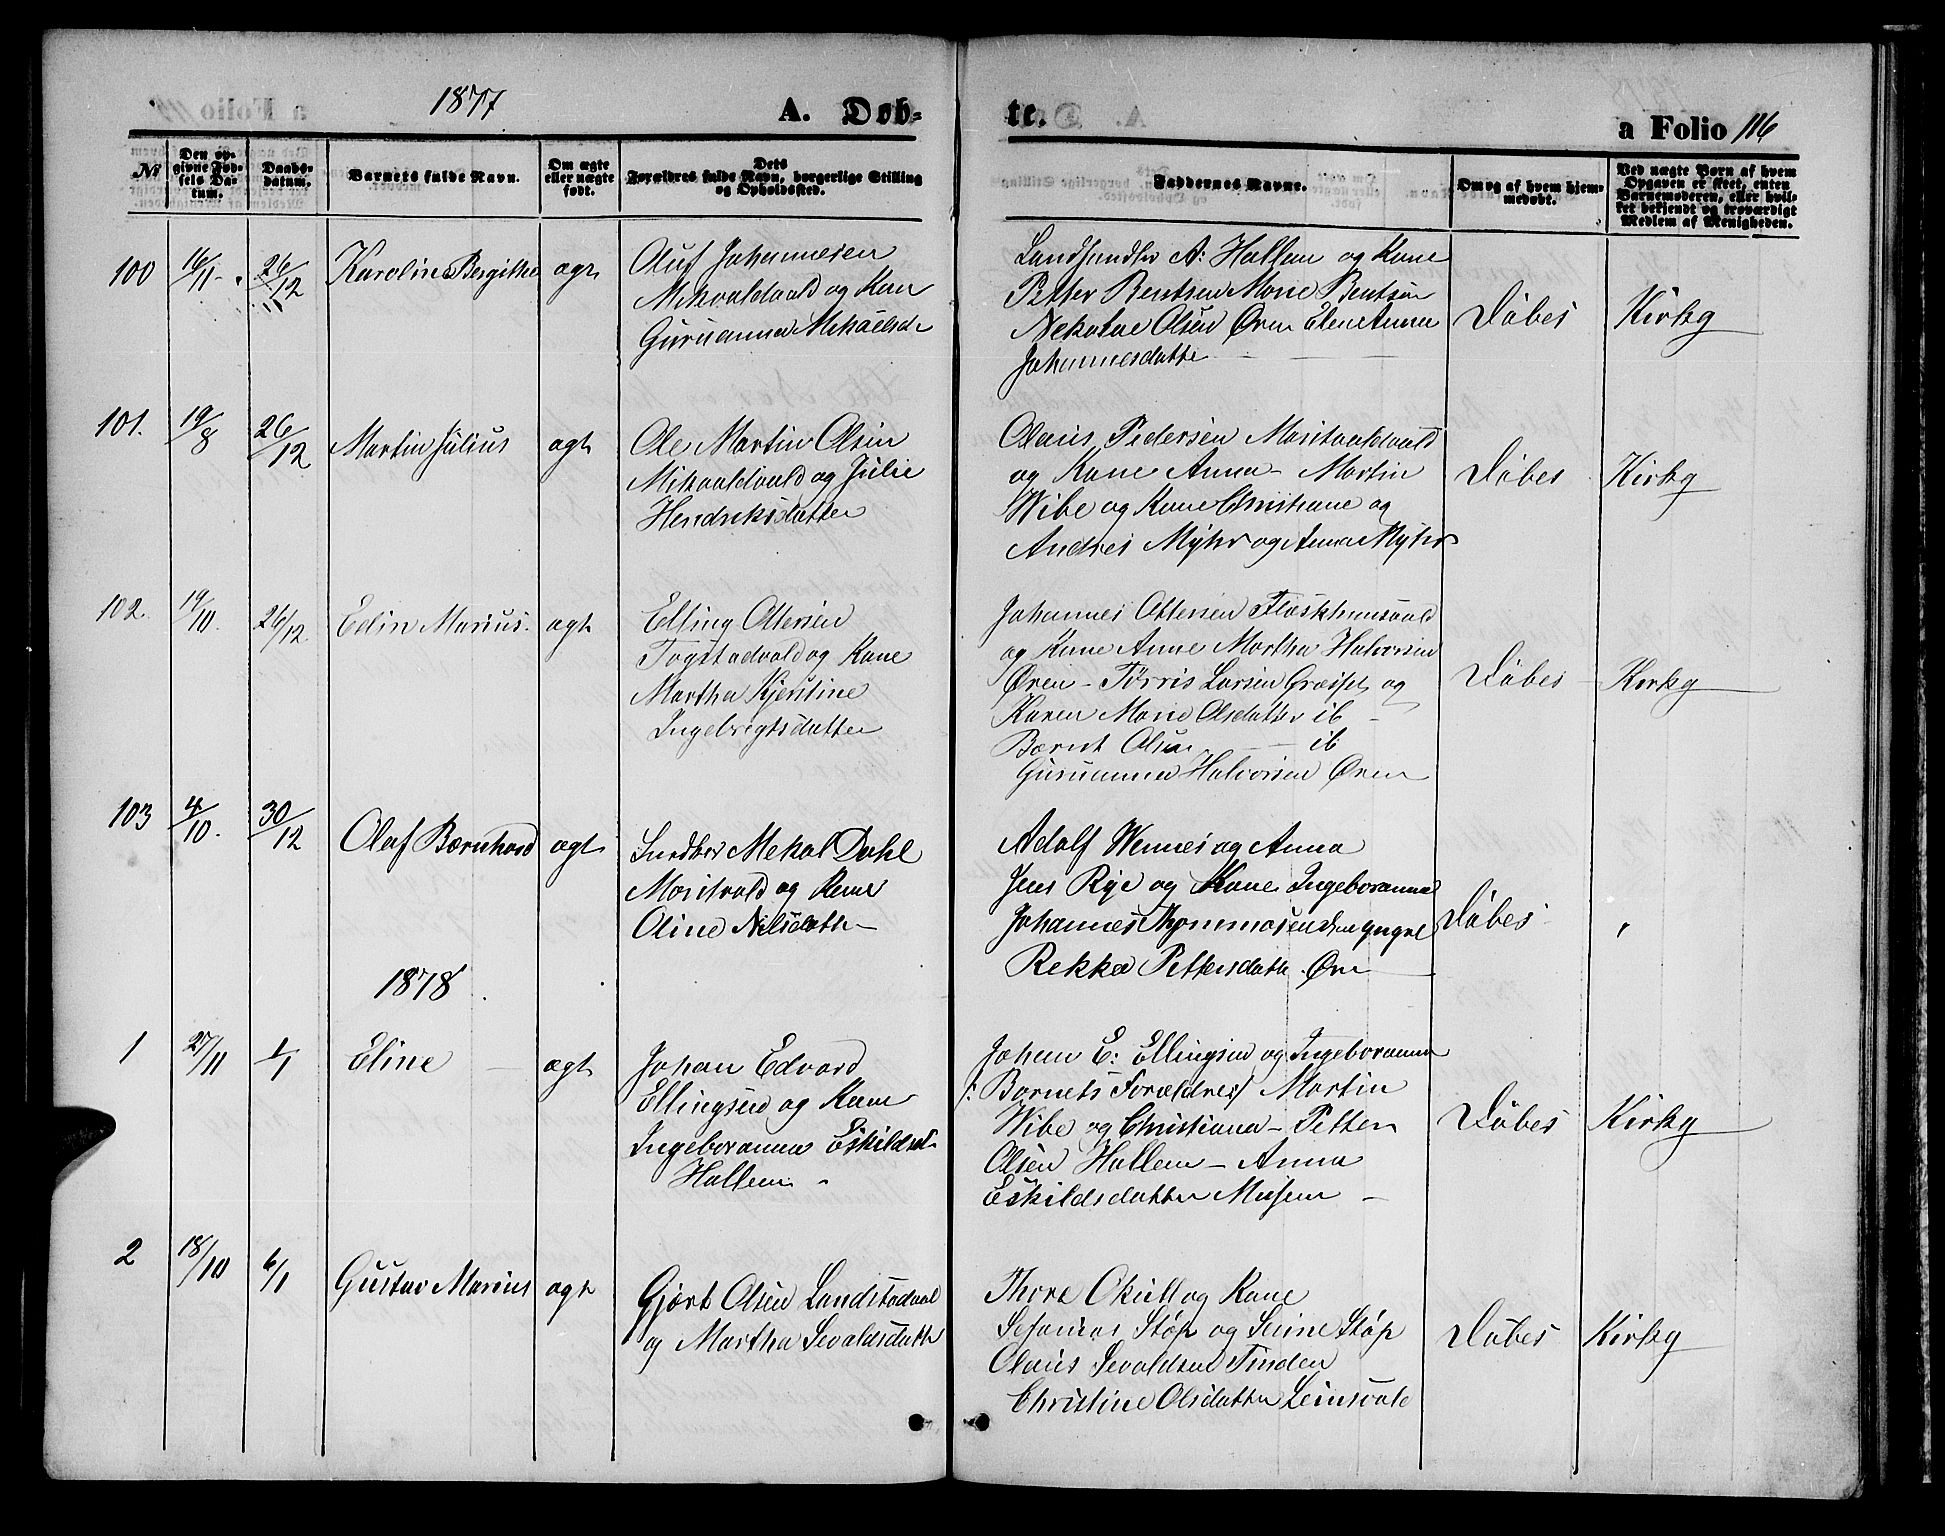 1877
A. Døb-
te.
a Folio 116
No
Den op-
givne Fød-
sels Da-
tum.
Daabs-
datum.
Barnets fulde Navn.
Om ægte
eller uægte
født.
Dets
Forældres fulde Navn, borgerlige Stilling
og Opholdssted.
Faddernes Navne.
Om og af hvem hjem-
medøbt.
Ved uægte Børn af hvem
Opgaven er skeet, enten
Barnemoderen, eller hvil-
ket bekjendt og troværdigt
Medlem af Menigheden.
100
16/11
26/12
Karoline Bergithe
Oluf Johannesen
og Kone
Guruanna Mikaelsd
A: Hallem og Kone
Petter Bentsen Marie Bentsen
Olsen Øren Elen Anna
Johannesdatte
Døbes
Kirky
101.
19/8
26/12
Martin Julius
ægt
Ole Martin Olsen
og Julie
Hendriksdatter
Olaus Pedersen Maritvaldvald
og Kone Anna - Martin
Wibe og Kone Christiane og
Andreas Myhr og Anna Myhr
Døbes
Kirky
102.
19/10
26/12
Edin Marius
ægt
Elling Ottersen
og Kone
Martha Kjerstine
Ingebrigtsdatter
Johannes Ottersen
og Kone Anne Martha Halvorsen
Øren - Tørris Larsen og
Karen Marie Olsdatter ib
Bernt Olsen ib
Guruanna Halvorsen Øren
Døbes
Kirky
103
4/10
30/12
Olaf Bernhard
ægt
Mekal Dahl
Maritvald og Kone
Oline Nilsdatte
Adolf Wennes og Anna
Jens Rye og Kone Ingeboranna
Johannes
Rekka Pettersdatte Øre
Døbes
1878
1
27/11
1/1
Eline
ægt
Johan Edvard
Ellingsen og Kone
Ingeboranna Eskildsd
Hallem
Johan E: Ellingsen og Ingeboranna
/: Barnets Forældre :/ Martin
Wibe og Christiana - Petter
Olsen Hallem - Anna
Eskildsdatter
Døbes
Kirky
2
18/10
6/1
Gustav Marius
ægt
Gjørt Olsen Landstadvald
og Martha Sevaldsdatte
og Kone
Støp og Serine Støp
Olaus Sevaldsen Tinden
Christine Olsdatter
Døbes
Kirky